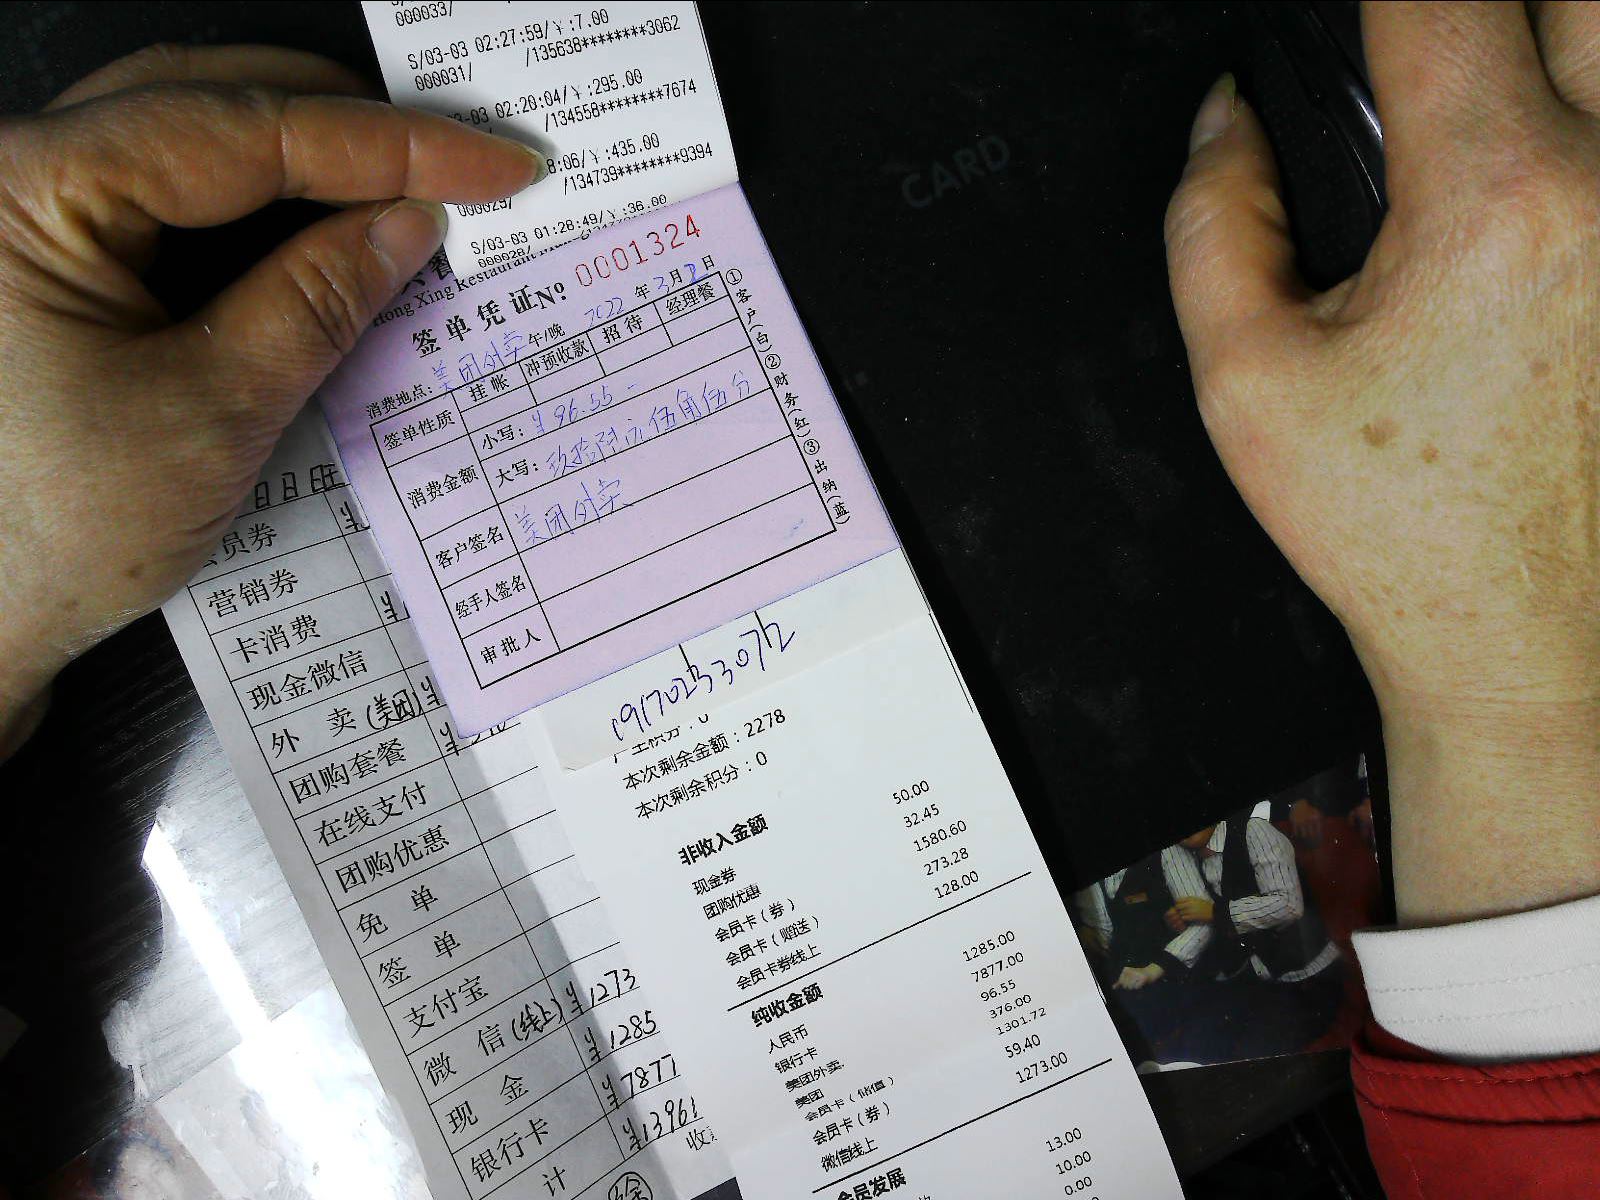 000033/
S/03-03 02:27:59/￥:7.00
000031/ /135638********3062
-03 02:20:04/￥:295.00
/134558********7674
8:06/￥:435.00
/134739********9394
000029/
S/03-03 01:28:49/￥:36.00
000028/
CARD
Hong Xing Restaurant
签单凭证 No: 0001324
消费地点: 美团外卖 午/晚 2022 年 3 月 2 日
签单性质 挂帐 冲预收款 招待 经理餐
消费金额 小写: ￥96.55-
大写: 玖拾陆元伍角伍分
客户签名 美团外卖
经手人签名
审批人
①客户(白) ②财务(红) ③出纳(蓝)
会员券 ￥
营销券
卡消费 ￥
现金微信
外卖(美团) ￥
团购套餐 ￥
在线支付
团购优惠
免单
签单
支付宝
微信(线上) ￥1273
现金 ￥1285
银行卡 ￥7877
计 ￥13961
本次剩余金额:2278
本次剩余积分:0
非收入金额
现金券 50.00
团购优惠 32.45
会员卡(券) 1580.60
会员卡(赠送) 273.28
会员卡券线上 128.00
纯收金额
人民币 1285.00
银行卡 7877.00
美团外卖 96.55
美团 376.00
会员卡(储值) 1301.72
会员卡(券) 59.40
微信线上 1273.00
会员发展
13.00
10.00
0.00